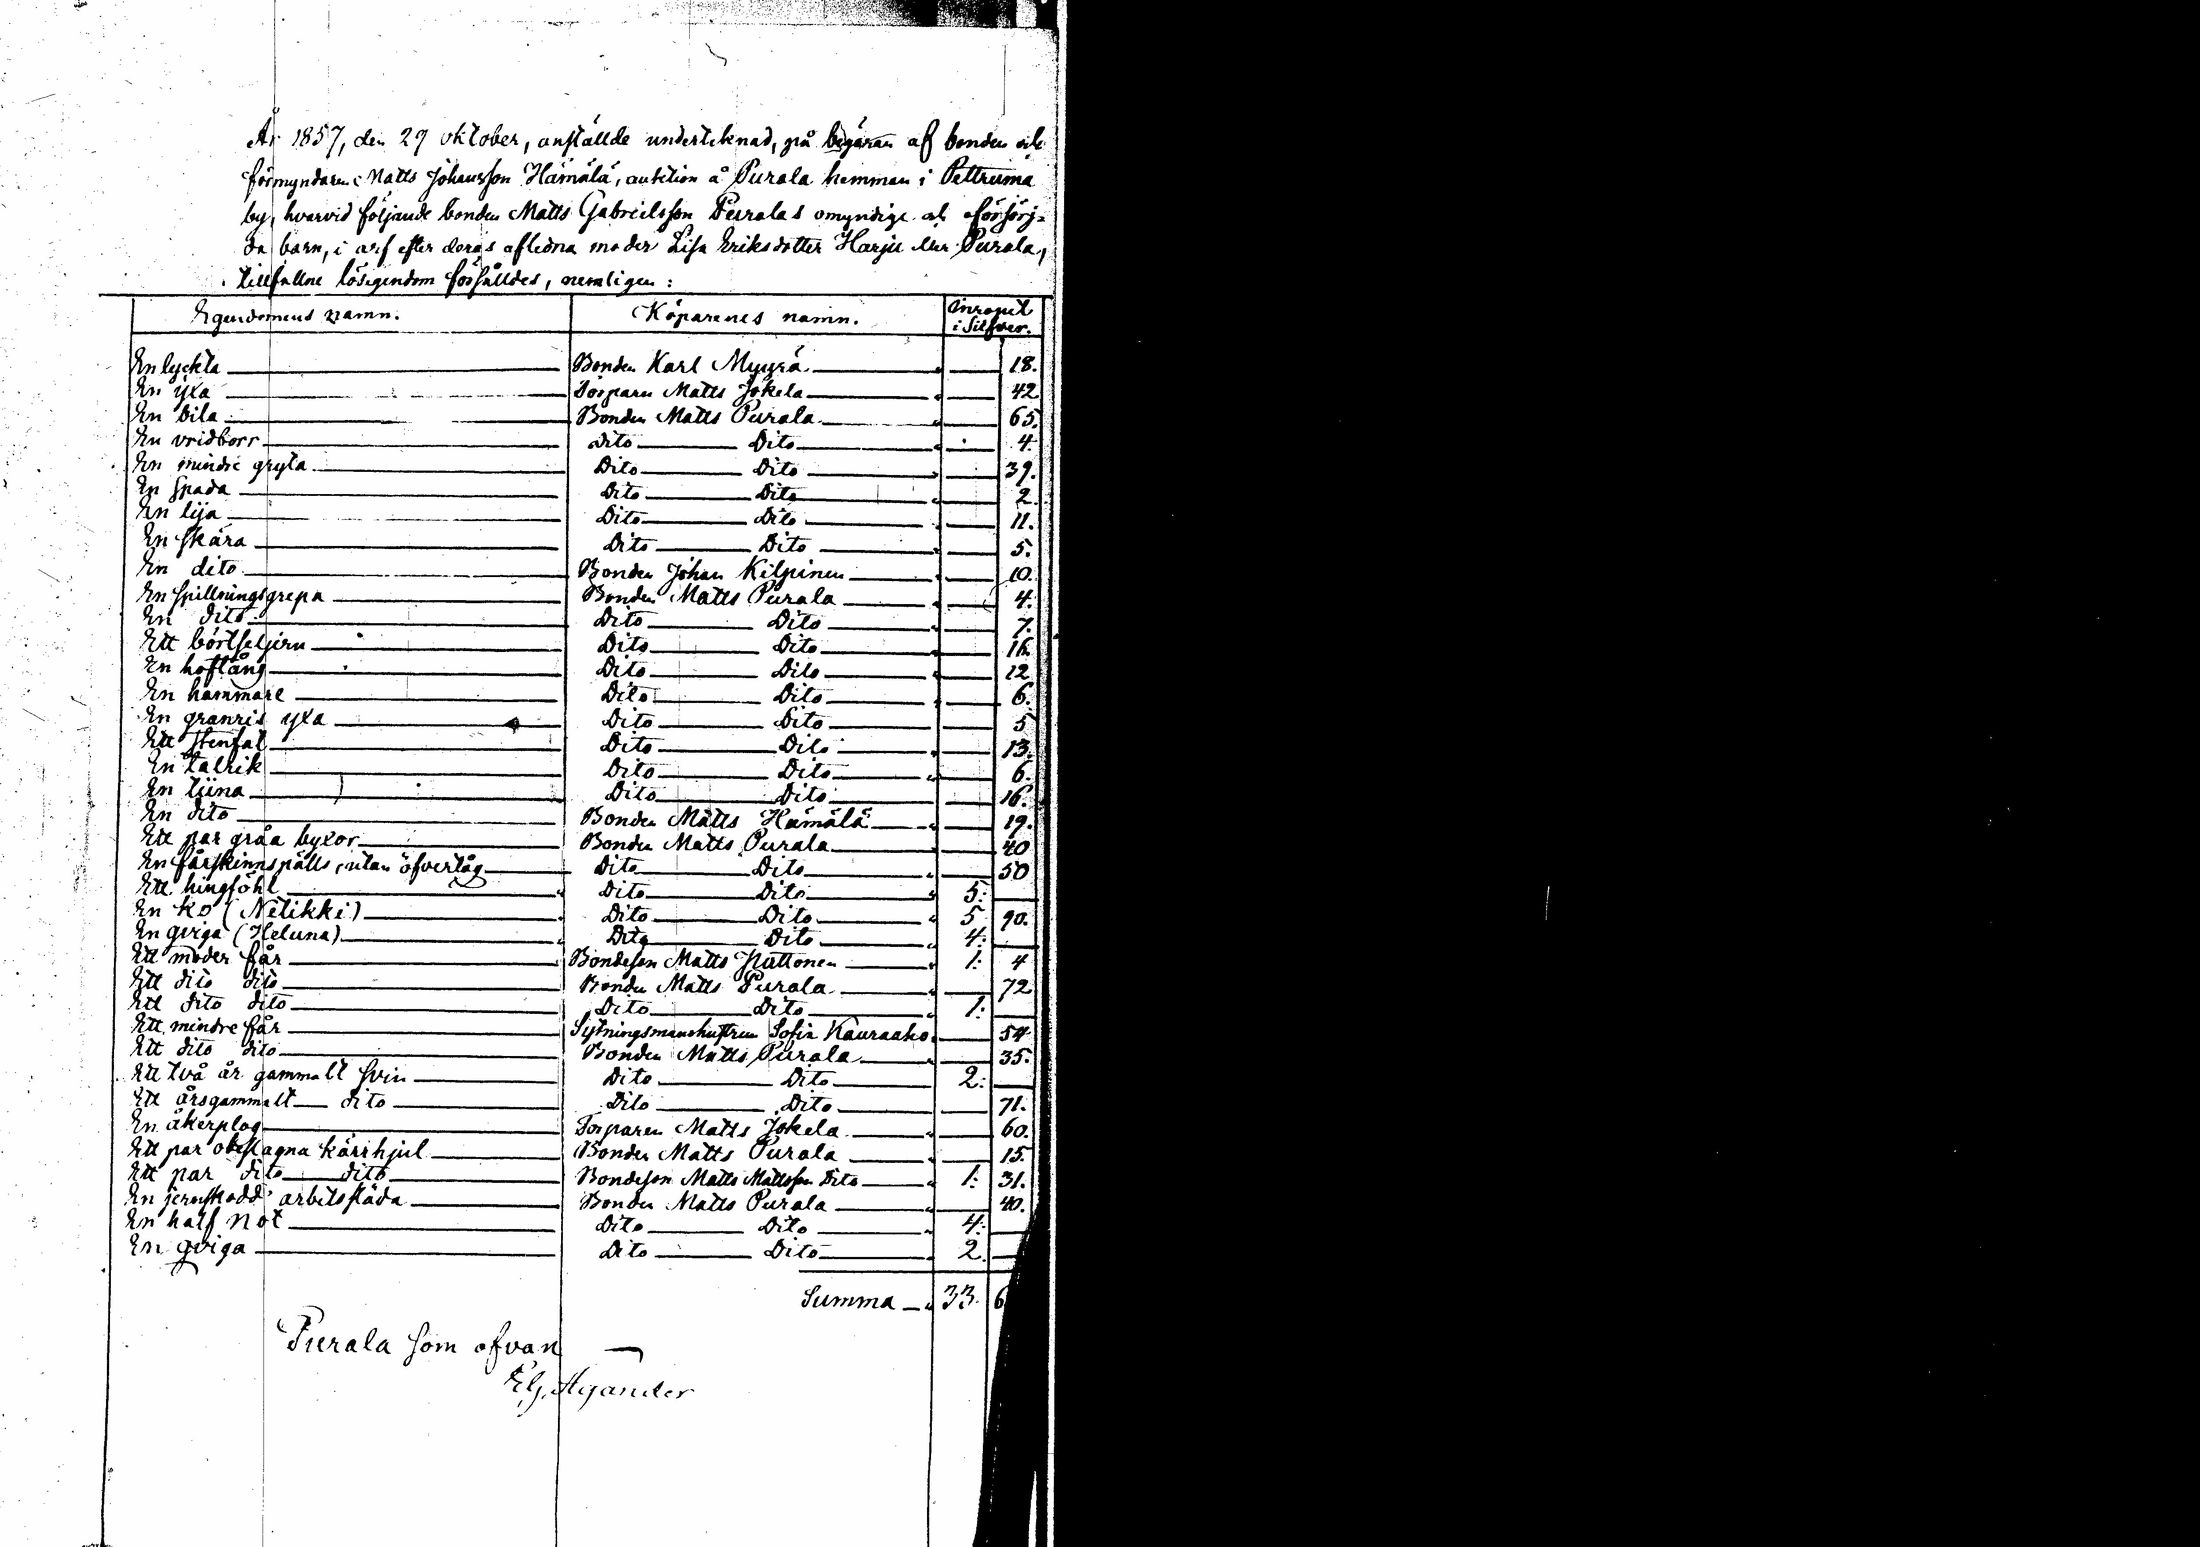 År 1857, den 29 oktober, anställde underteknad, på begäran af bonden och
förmyndaren Matts Johansson Hämälä, auktion å Purala hemman i Pettruma
by, hvarvid följande bonden Matts Gabrielsson Puralas omyndige och oförsörj-
da barn, i arf efter deras aflidna moder Lisa Eriksdotter Harju eller Purala,
tillfallne lösegendom försåldes, nemligen:
Egendomens namn. Köparenes namn. Inropet i Silfver.
En lyckta Bonden Karl Myyrä " 18.
En yxa Torparen Matts Jokela " 42
En bila Bonden Matts Purala " 65.
En vridborr Dito Dito " 4.
En mindre gryta Dito Dito " 39.
En spada Dito Dito " 2.
En lija Dito Dito " 11.
En skära Dito Dito " 5.
En dito Bonden Johan Kilpinen " 10.
En spillningsgrepa Bonden Matts Purala " 4.
En dito Dito Dito " 7.
Ett Dito Dito " 16.
En hoftång Dito Dito " 12
En hammare Dito Dito " 6.
En granris yxa Dito Dito " 5
Ett stenfat Dito Dito " 13.
En talrik Dito Dito " 6.
En tiina Dito Dito " 16.
En dito Bonden Matts Hämälä " 19.
Ett par gråa byxor Bonden Matts Purala " 40
En fårskinnspälls, utan öfvertåg Dito Dito " 50
Ett hingföhl Dito Dito " 5:
En ko (Nelikki) Dito Dito " 5 90.
En qviga (Heluna) Dito Dito " 4:
Ett moder får Bondeson Matts Huttonen " 1: 4
Ett dito dito Bonden Matts Purala " 72
Ett dito dito Dito Dito " 1:
Ett mindre får Sytningsmanshustrun Sofia Kauraaho " 54
Ett dito dito Bonden Matts Purala " 35.
Ett två år gammalt svin Dito Dito " 2:
Ett årsgammalt dito Dito Dito " 71.
En åkerplog Torparen Matts Jokela " 60.
Ett par obeslagna kärrhjul Bonden Matts Purala " 15.
Ett par dito dito Bondeson Matts Mattsson Dito " 1: 31.
En jernskodd arbetssläda Bonden Matts Purala " 40.
En half not Dito Dito " 4:
En qviga Dito Dito " 2.
Summa " 33. 6
Purala som ofvan